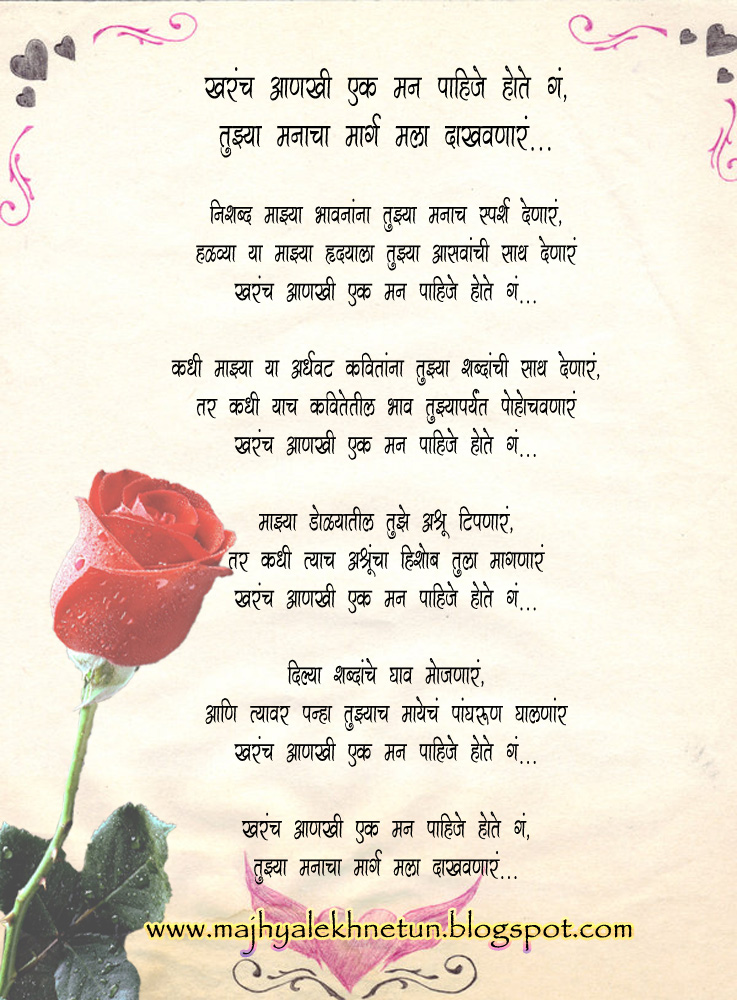 खरंच आणखी एक मन पाहिजे होते गं,
तुझ्या मनाचा मार्ग मला दाखवणारं...
निशब्द माझ्या भावनांना तुझ्या मनाच स्पर्श देणारं,
हळव्या या माझ्या हृदयाला तुझ्या आसवांची साथ देणारं
खरंच आणखी एक मन पाहिजे होते गं...
कधी माझ्या या अर्धवट कवितांना तुझ्या शब्दांची साथ देणारं,
तर कधी याच कवितेतील भाव तुझ्यापर्यंत पोहोचवणारं
खरंच आणखी एक मन पाहिजे होते गं...
माझ्या डोळयातील तुझे अश्रू टिपणारं,
तर कधी त्याच अश्रूंचा हिशोब तुला मागणारं
खरंच आणखी एक मन पाहिजे होते गं...
दिल्या शब्दांचे घाव मोजणारं,
आणि त्यावर पन्हा तुझ्याच मायेचं पांघरूण घालणांर
खरंच आणखी एक मन पाहिजे होते गं...
खरंच आणखी एक मन पाहिजे होते गं,
तुझ्या मनाचा मार्ग मला दाखवणारं...
www.majhyalekhnetun.blogspot.com